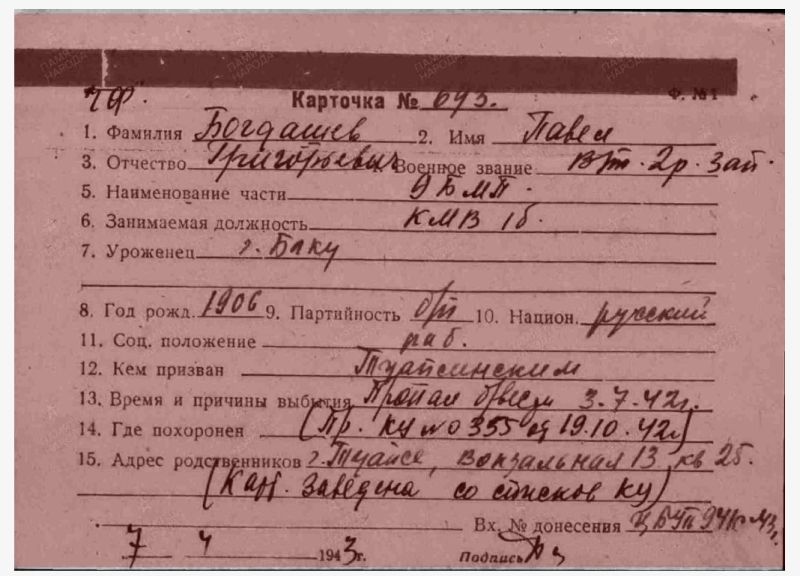 ЧФ.
Карточка № 693. Ф. №1
1. Фамилия Богдашев 2. Имя Павел
3. Отчество Григорьевич Военное звание 2р. зап.
5. Наименование части 9 БМП.
6. Занимаемая должность КМВ 1б.
7. Уроженец г. Баку
8. Год рожд. 1906 9. Партийность б/п 10. Национ. русский
11. Соц. положение раб.
12. Кем призван Туапсинским
13. Время и причины выбытия Пропал б/вести 3-7-42г.
14. Где похоронен (Пр. КУ № 0355 от 19.10.42г)
15. Адрес родственников г. Туапсе, Вокзальная 13, кв 25.
(Карт. заведена со списков КУ)
Вх. № донесения
7 4 1943г. Подпись